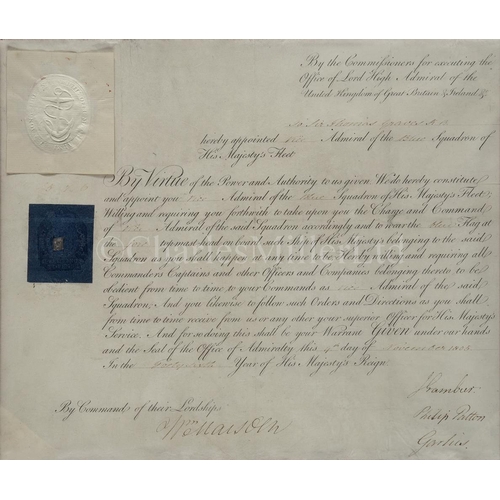 By the Commissioners for executing the
Office of Lord High Admiral of the
United Kingdom of Great Britain & Ireland &c
To Sir Thomas Graves K B
hereby appointed Vice Admiral of the Blue Squadron of
His Majesty's Fleet
By Virtue of the Power and Authority to us given We do hereby constitute
and appoint you Vice Admiral of the Blue Squadron of His Majesty's Fleet;
Willing and requiring you forthwith to take upon you the Charge and Command
of Vice Admiral of the said Squadron accordingly and to wear the Blue Flag at
the topmast head on board such ship of His Majesty's belonging to the said
Squadron as you shall happen at any time to be Hereby willing and requiring all
Commanders Captains and other Officers and Companies belonging thereto to be
obedient from time to time to your Commands as Vice Admiral of the said
Squadron; And you likewise to follow such Orders and Directions as you shall
from time to time receive from us or any other your superior Officer for His Majesty's
Service. And for so doing this shall be your Warrant Given under our hands
and the Seal of the Office of Admiralty this day of November
In the Year of His Majesty's Reign
By Command of their Lordships
Wm Marsden
Gambier
Philip Patton
Garlies